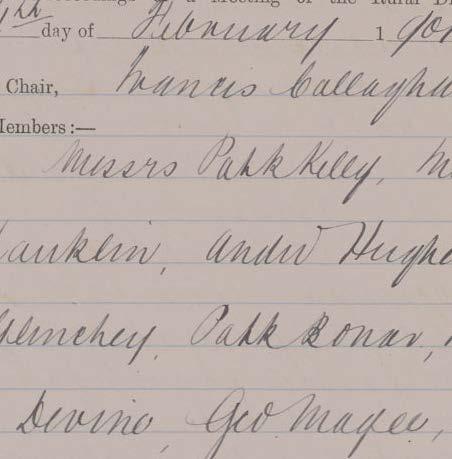 Meeting of the Rural
day of February 190
Chair, Francis Callagha
Members:—
Messrs Patk Kelly, M
anklin, Andw Hughe
Patk Bonar,
Devine, Geo Magee,